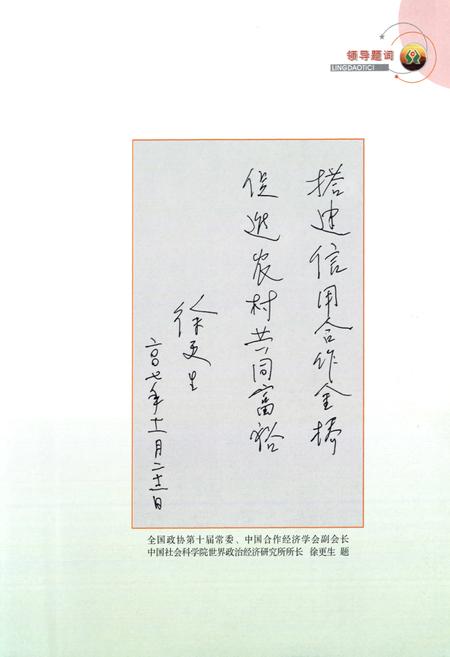 领导题词
LINGDAOTICI
搭建信用合作金桥
促进农村共同富裕
徐更生
二〇〇七年十一月二十六日
全国政协第十届常委、中国合作经济学会副会长
中国社会科学院世界政治经济研究所所长 徐更生 题